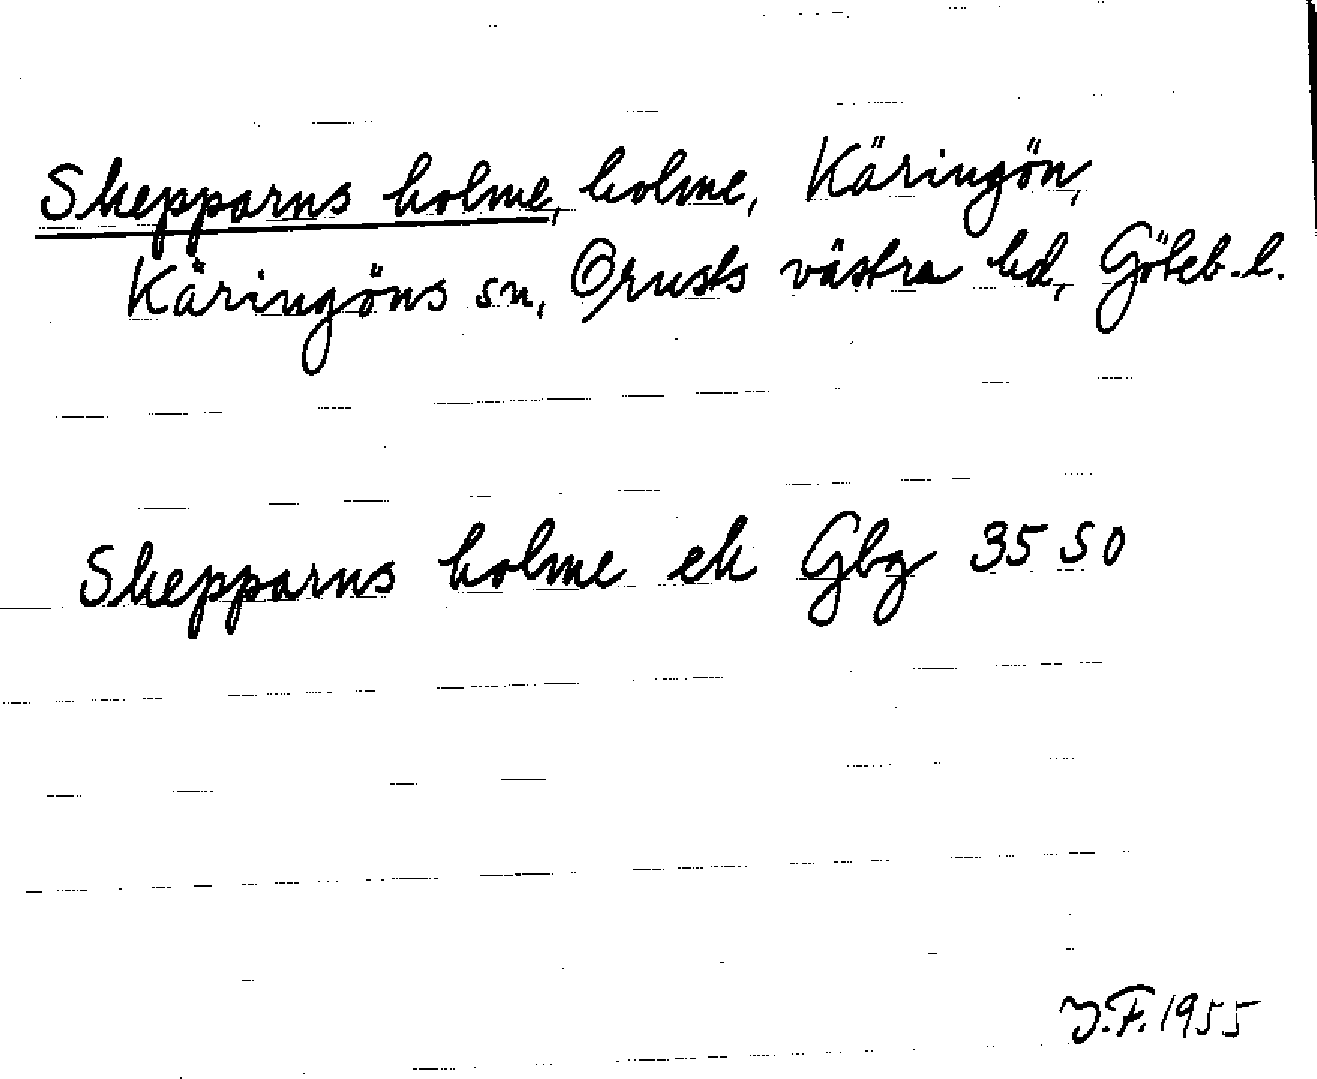 Skepparns holme, holme, Käringön,
Käringöns sn, Orusts västra hd, Göteb.l.
Skepparns holme ek Gbg 35 SO
J.F. 1955